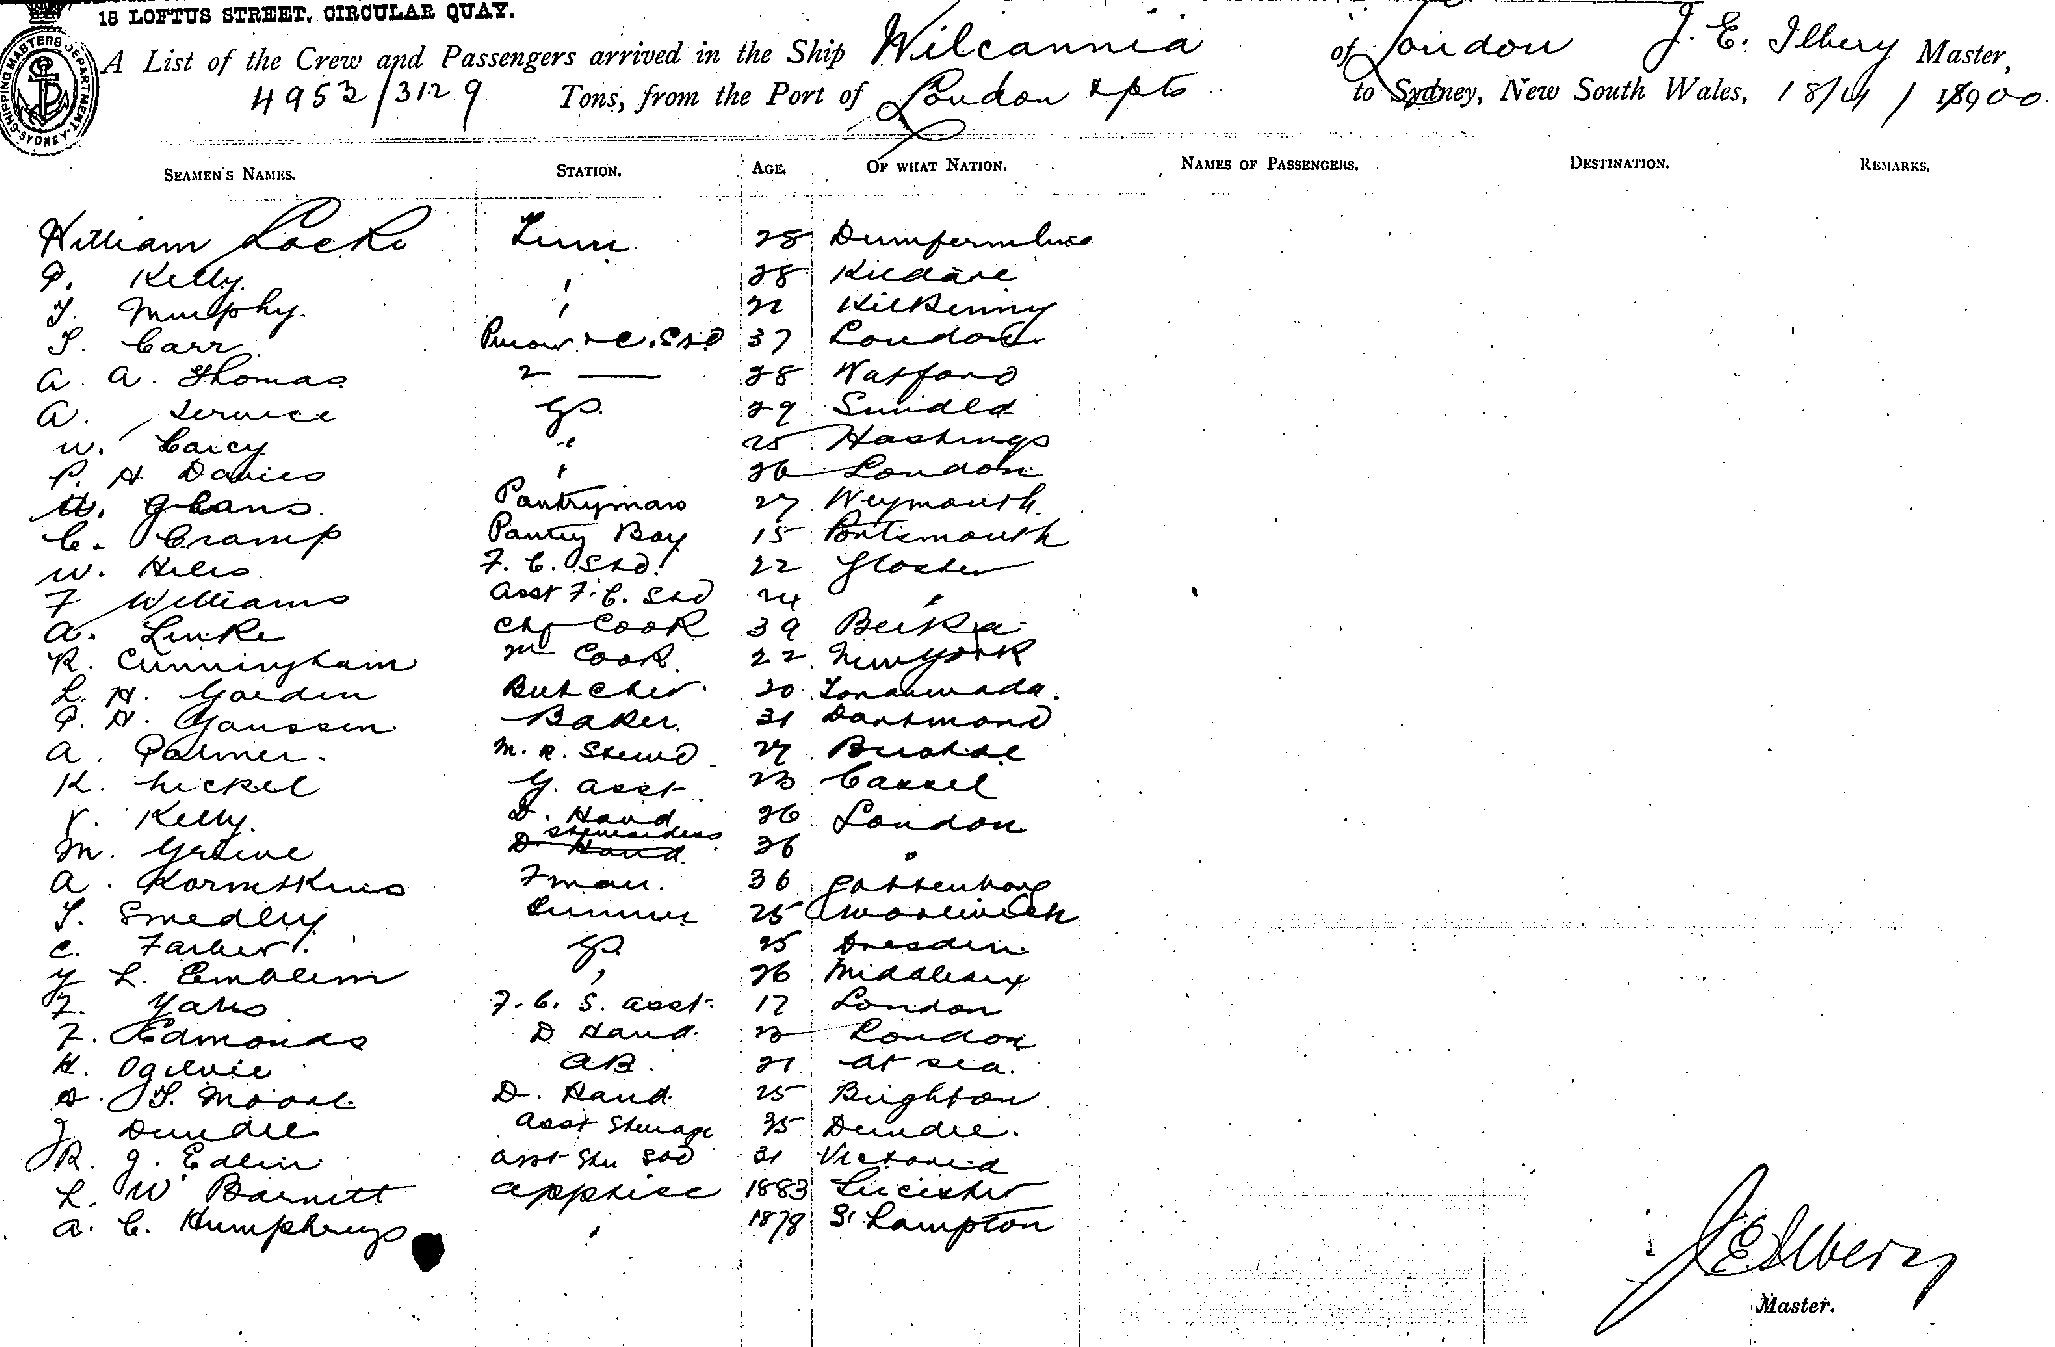 18 LOFTUS STREET, CIRCULAR QUAY.
A List of the Crew and Passengers arrived in the Ship Wilcannia of London J. E. Ilbery Master,
4953/3129 Tons, from the Port of London & pts to Sydney, New South Wales, 18/11/1900.
SEAMEN'S NAMES. STATION. AGE. OF WHAT NATION. NAMES OF PASSENGERS. DESTINATION. REMARKS.
William Locke 28 Dumfermline
P. Kelly. " 28 Kildare
T. Murphy. " 22 Kilkenny
S. Carr 37 London
A. A. Thomas 2 — 28 Watford
A. Service GS. 29 Sundld
W. " 25 Hastings
P. H Davies " 26 London
Pantryman 27 Weymouth.
C. Cramp Pantry Boy 15 Portsmouth
W. Hiles F. C. Std. 22 Gloster
F Williams Asst F. C. Std 24 "
A. Linke Chf Cook 39
R. Cunningham Cook. 22 New York
L. H. Butcher. 20 Tonawanda.
P. H. Janssen Baker. 31 Dortmond
A. Palmer. M. R. Stewd. 27
K. Nickel G. Asst. 23 Cassel
V. Kelly. D. Hand 26 London
M. Greive Stewardess D Hand. 36 "
A. Fman. 36
T. Smedley 25 Woolwich
C. Farber. GS. 25 Dresden.
L. Emblem " 26 Middlesex
F. Yates F. C. S. Asst. 17 London
F. Edmonds D Hand. 23 London
H. Ogilvie AB. 21 At sea.
S. Moore D. Hand. 25 Brighton
J. Dundee Asst Sterage 35 Dundee.
R. J. Edlin Asst Ste Std 31 Victoria
L. W. Barnett Apptice 1883 Leicester
A. C. Humphreys " 1878 S'hampton
J E Ilbery
Master.